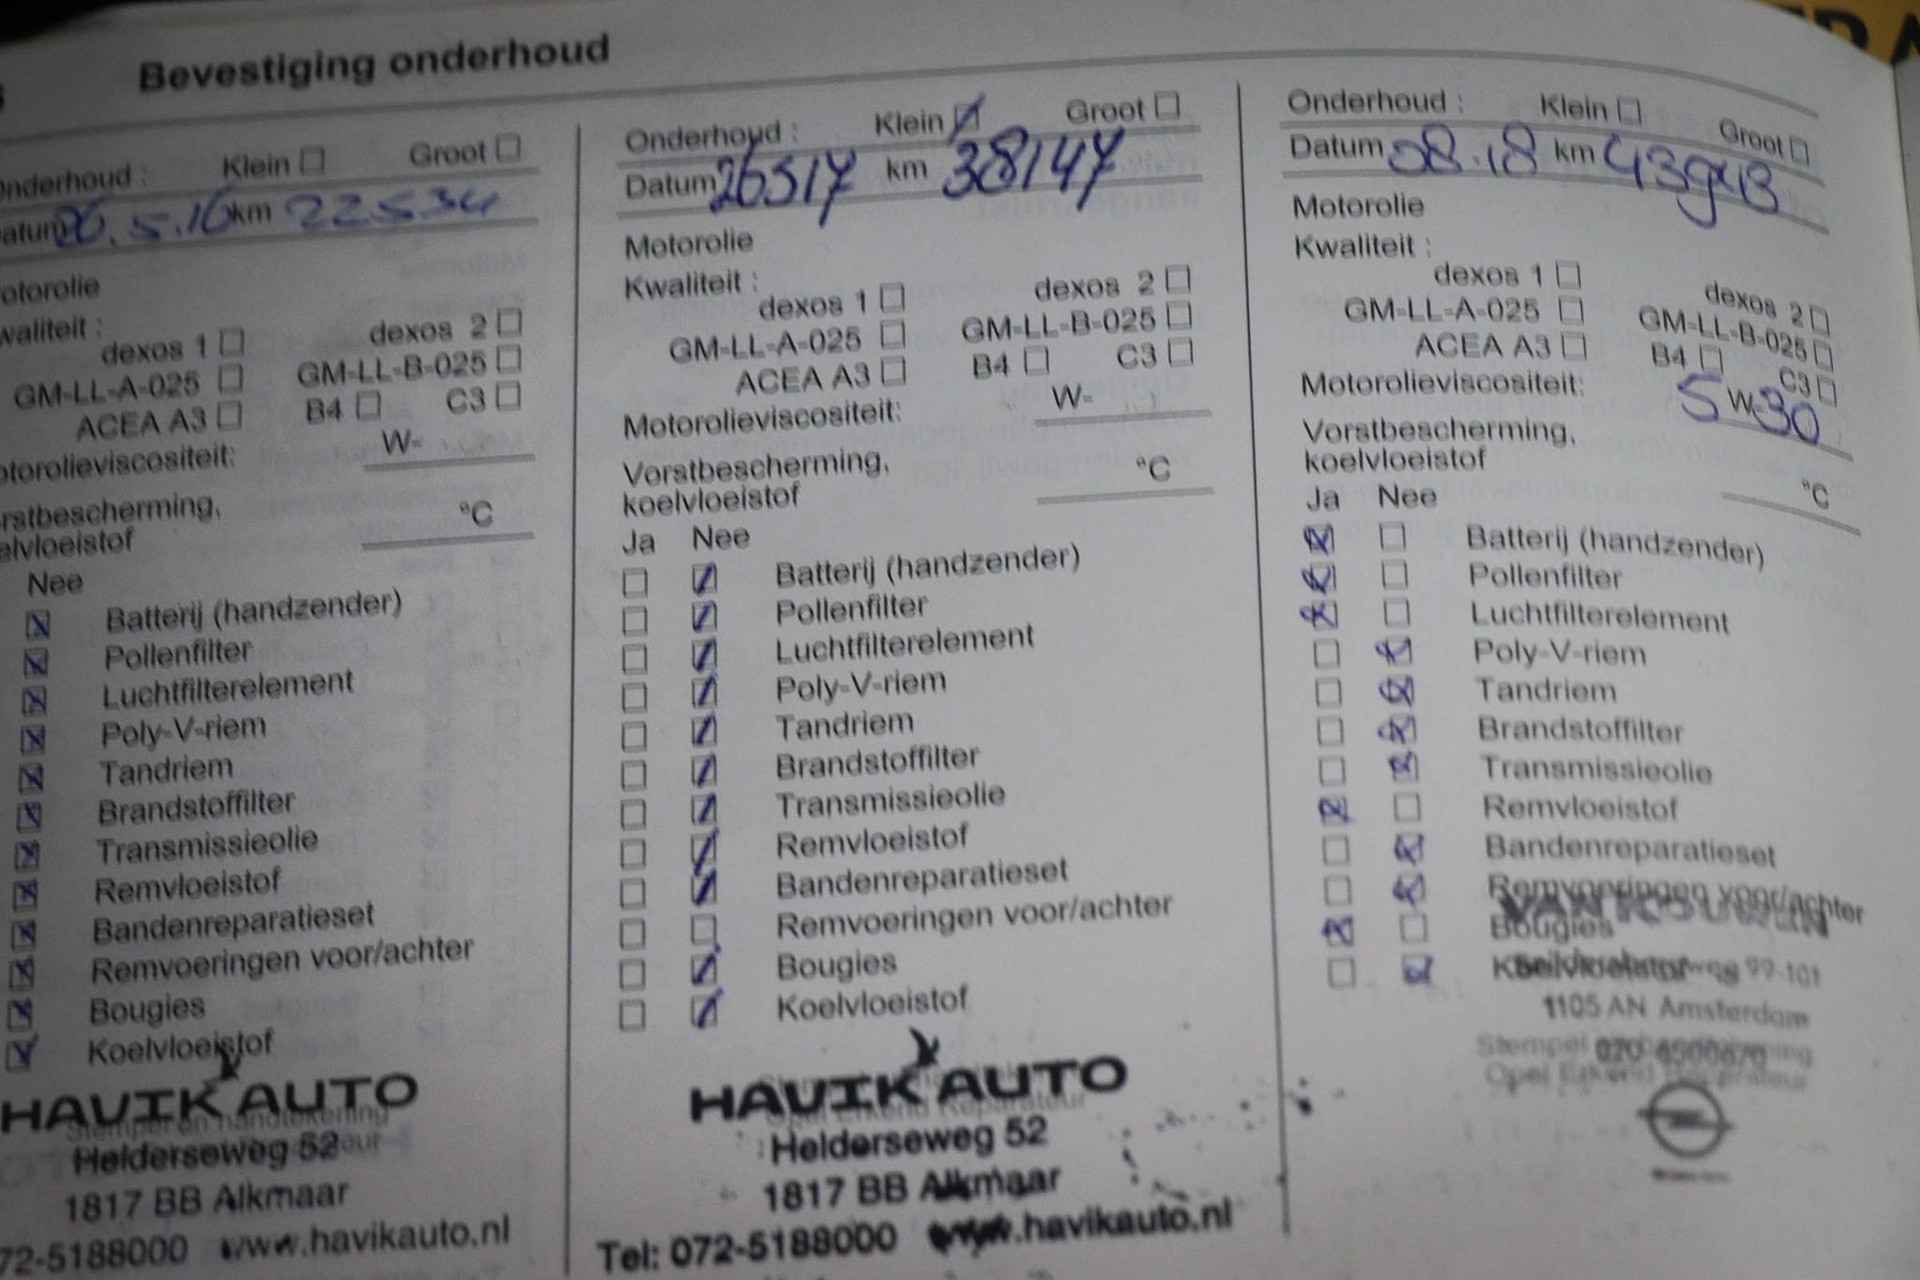 Bevestiging onderhoud
Onderhoud : Klein Groot
26.5.16 km 22534
Kwaliteit :
dexos 1 dexos 2
GM-LL-A-025 GM-LL-B-025
ACEA A3 B4 C3
W-
°C
Nee
Batterij (handzender)
Pollenfilter
Luchtfilterelement
Poly-V-riem
Tandriem
Brandstoffilter
Transmissieolie
Remvloeistof
Bandenreparatieset
Remvoeringen voor/achter
Bougies
Koelvloeistof
HAVIK AUTO
Helderseweg 52
1817 BB Alkmaar
72-5188000 www.havikauto.nl
Onderhoud : Klein Groot
Datum 26517 km 38147
Motorolie
Kwaliteit :
dexos 1 dexos 2
GM-LL-A-025 GM-LL-B-025
ACEA A3 B4 C3
Motorolieviscositeit: W-
Vorstbescherming,
koelvloeistof °C
Ja Nee
Batterij (handzender)
Pollenfilter
Luchtfilterelement
Poly-V-riem
Tandriem
Brandstoffilter
Transmissieolie
Remvloeistof
Bandenreparatieset
Remvoeringen voor/achter
Bougies
Koelvloeistof
HAVIK AUTO
Helderseweg 52
1817 BB Alkmaar
Tel: 072-5188000 www.havikauto.nl
Onderhoud : Klein Groot
Datum 08.18 km
Motorolie
Kwaliteit :
dexos 1 dexos 2
GM-LL-A-025 GM-LL-B-025
ACEA A3 B4 C3
Motorolieviscositeit: 5 W-30
Vorstbescherming,
koelvloeistof °C
Ja Nee
Batterij (handzender)
Pollenfilter
Luchtfilterelement
Poly-V-riem
Tandriem
Brandstoffilter
Transmissieolie
Remvloeistof
Bandenreparatieset
Remvoeringen voor/achter
Bougies
Koelvloeistof 99-101
1105 AN Amsterdam